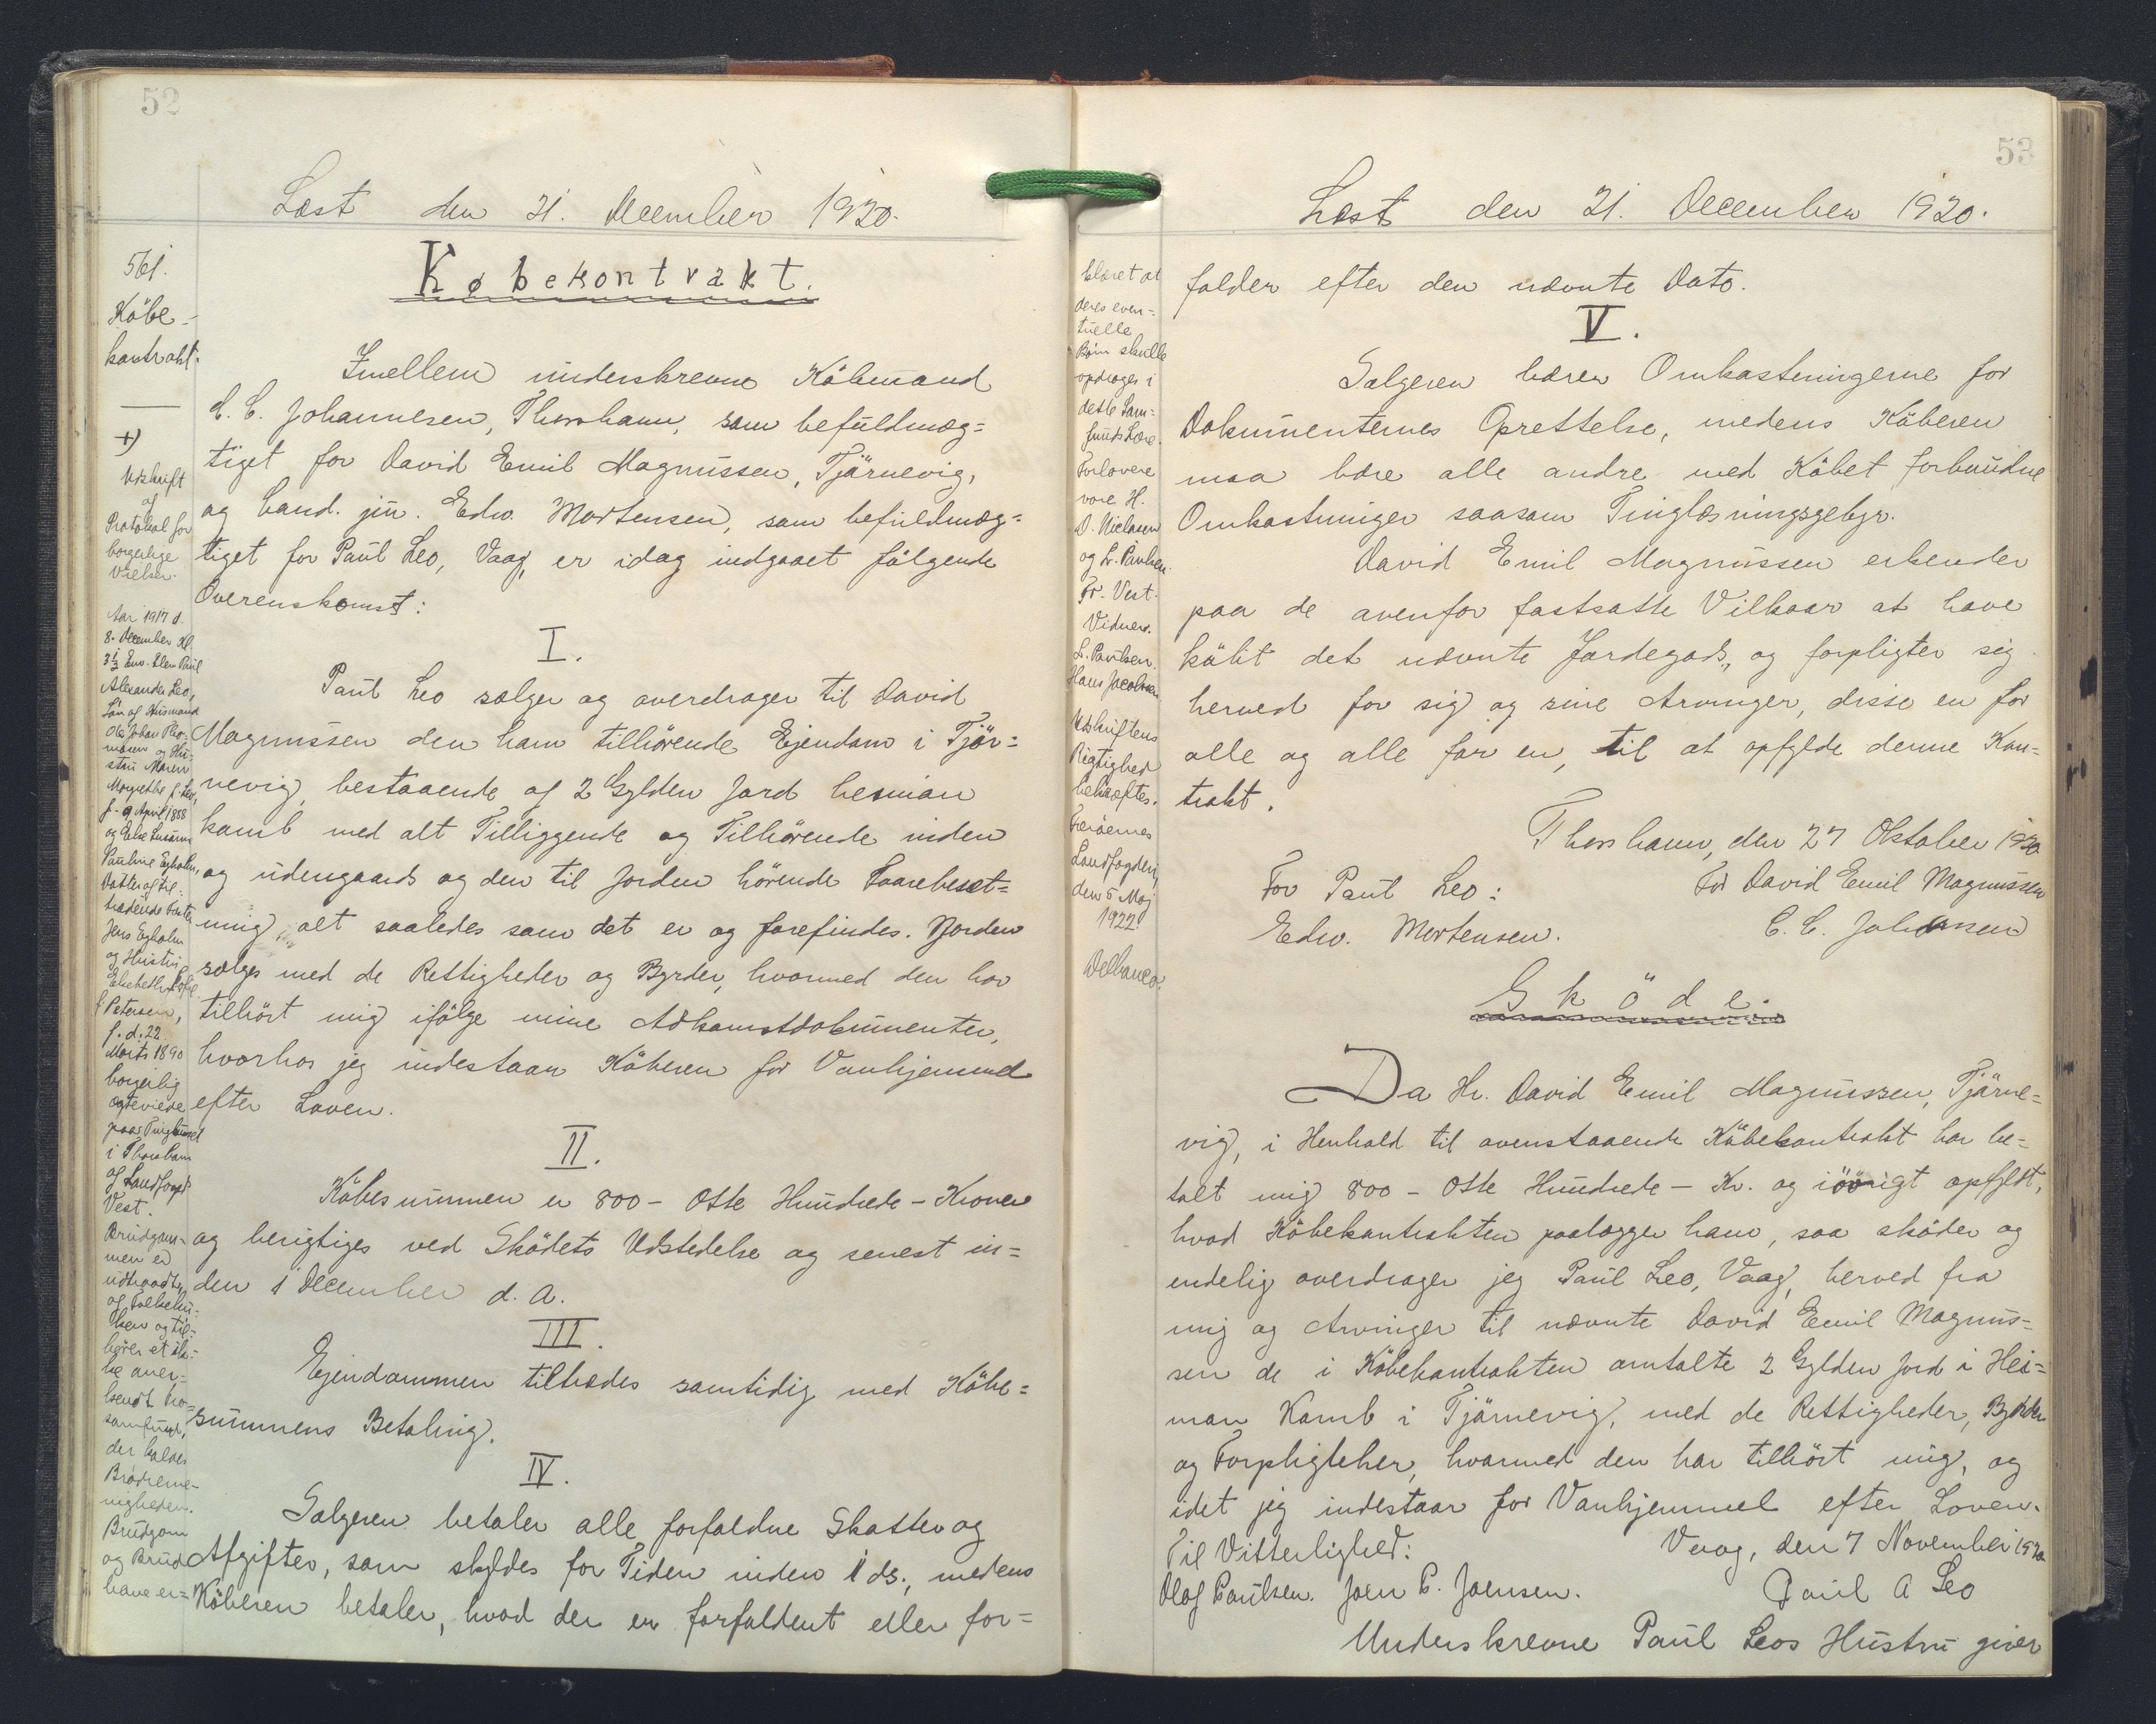 52
Læst den 21. December 1920.
561.
Købe-
kontrakt.
+)
Udskrift
af
Protokol for
borgerlige
Vielser.
Aar 1917 d.
8. December Kl.
3½ Em. blev Paul
Alexander Leo,
Søn af Husmand
Ole Johan Tho-
masen og Hu-
stru Maren
Margrethe f. Leo,
f. 9 April 1888
og Else Susanne
Pauline Egholm,
Datter af fra-
trædende Fæster
Jens Egholm
og Hustru
Elsebeth
f. Petersen,
f. d. 22.
Marts 1890
borgerlig
ægteviede
paa Tinghuset
i Thorshavn
af Landfoged
Vest.
Brudgom-
men er
udtraadt
af Folkekir-
ken og til-
hører et ik-
ke aner-
kendt Tro-
samfund,
der kaldes
Brødreme-
nigheden.
Brudgom
og Brud
have er-
Købekontrakt.
Imellem underskrevne Købmand
C. C. Johannesen, Thorshavn, som befuldmæg=
tiget for David Emil Magnussen, Tjørnevig,
og Cand. jur. Edw. Mortensen, som befuldmæg=
tiget for Paul Leo, Vaag, er idag indgaaet følgende
Overenskomst:
I.
Paul Leo sælger og overdrager til David
Magnussen den ham tilhørende Ejendom i Tjør=
nevig, bestaaende af 2 Gylden Jord heiman
kamb med alt Tilliggende og Tilhørende inden
og udengaards og den til Jorden hørende Faarebesæt=
ning, alt saaledes som det er og forefindes. Jorden
sælges med de Rettigheder og Byrder, hvormed den har
tilhørt mig ifølge mine Adkomstdokumenter,
hvorhos jeg indestaar Køberen for Vanhjemmel
efter Loven.
II.
Købesummen er 800 - Otte Hundrede - Kroner
og berigtiges ved Skødets Udstedelse og senest in=
den 1 December d. A.
III.
Ejendommen tiltrædes samtidig med Købe=
summens Betaling.
IV.
Sælgeren betaler alle forfaldne Skatter og
Afgifter, som skyldes for Tiden inden 1 ds., medens
Køberen betaler, hvad der er forfaldent eller for=
53
Læst den 21. December 1920.
klæret at
deres even=
tuelle
Børn skulle
opdrages i
dette Sam=
funds Lære.
Forlovere
vare H.
D. Nielsen
og L. Paulsen.
Fr. Vest.
Vidner.
L. Paulsen.
Hans Jacobsen
Udskriftens
Rigtighed
bekræftes.
Færøernes
Landfogderi,
den 5 Maj
1922.
Delbanco.
falder efter den nævnte Dato.
V.
Sælgeren bærer Omkostningerne for
Dokumenternes Oprettelse, medens Køberen
maa bære alle andre med Købet forbundne
Omkostninger saasom Tinglæsningsgebyr.
David Emil Magnussen erkender
paa de ovenfor fastsatte Vilkaar at have
købt det nævnte Jordegods, og forpligter sig
herved for sig og sine Arvinger, disse en for
alle og alle for en, til at opfylde denne Kon=
trakt.
Thorshavn, den 27 Oktober 1920
For Paul Leo:
For David Emil Magnussen
Edw. Mortensen.
C. C. Johannesen
Skøde.
Da Hr. David Emil Magnussen, Tjørne=
vig, i Henhold til ovenstaaende Købekontrakt har be=
talt mig 800 - Otte Hundrede - Kr. og iøvrigt opfyldt,
hvad Købekontrakten paalægger ham, saa skøder og
endelig overdrager jeg Paul Leo, Vaag, herved fra
mig og Arvinger til nævnte David Emil Magnus=
sen de i Købekontrakten omtalte 2 Gylden Jord i Hei=
man Kamb i Tjørnevig, med de Rettigheder, Byrder
og Forpligtelser, hvormed den har tilhørt mig, og
idet jeg indestaar for Vanhjemmel efter Loven.
Til Vitterlighed:
Vaag, den 7 November 1920
Olaf Poulsen. Joen P. Joensen.
Paul A Leo
Underskrevne Paul Leos Hustru giver